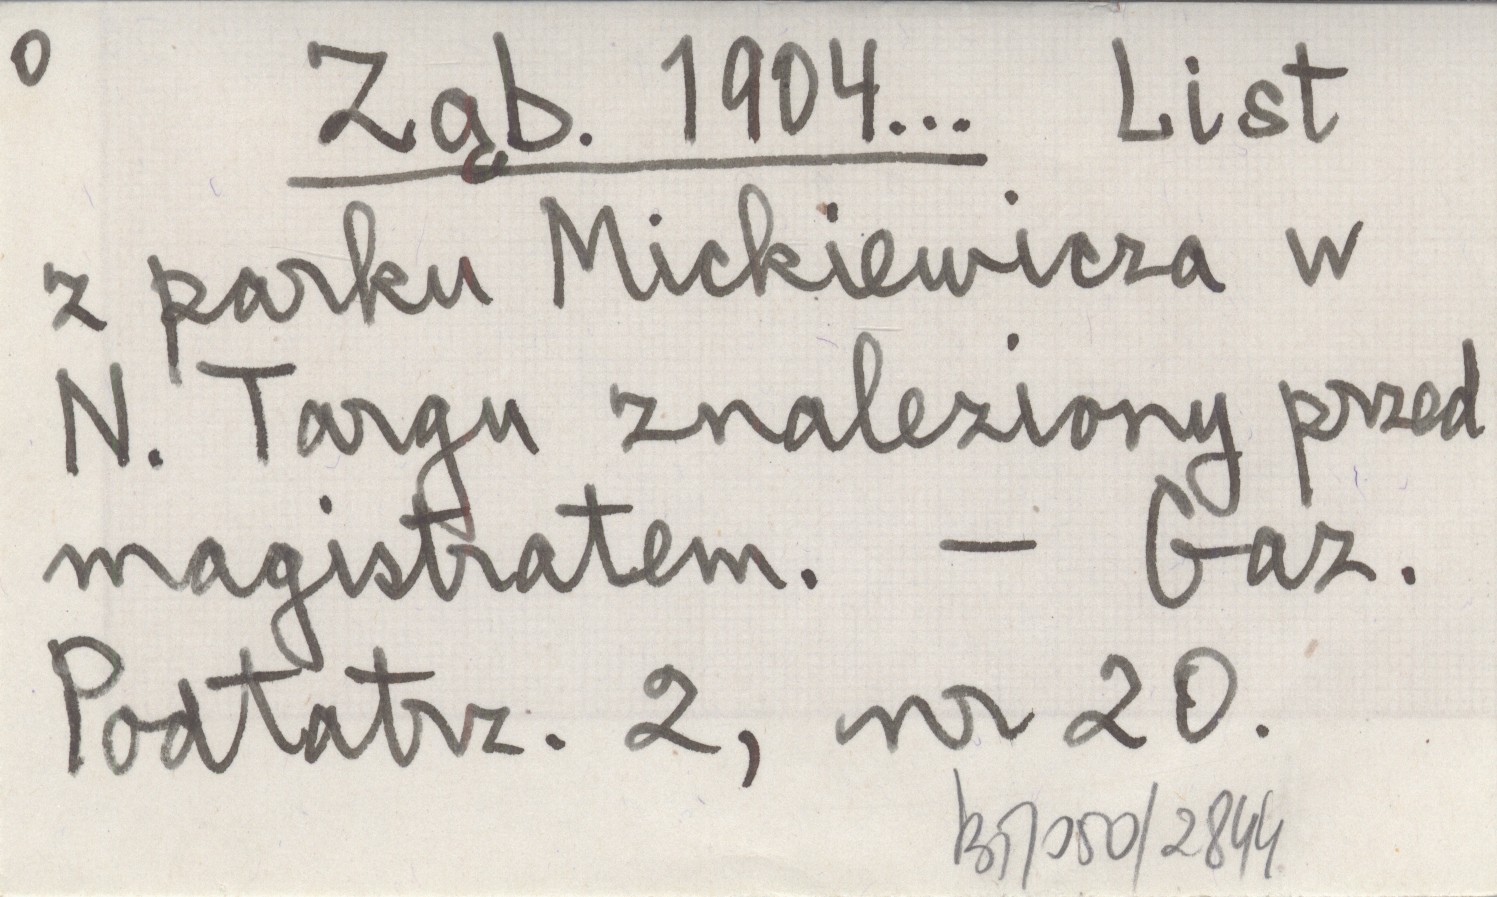 o Ząb. 1904... List
z parku Mickiewicza w
N. Targu znaleziony przed
magistratem. — Gaz.
Podtatrz. 2, nr 20.
/050/2844